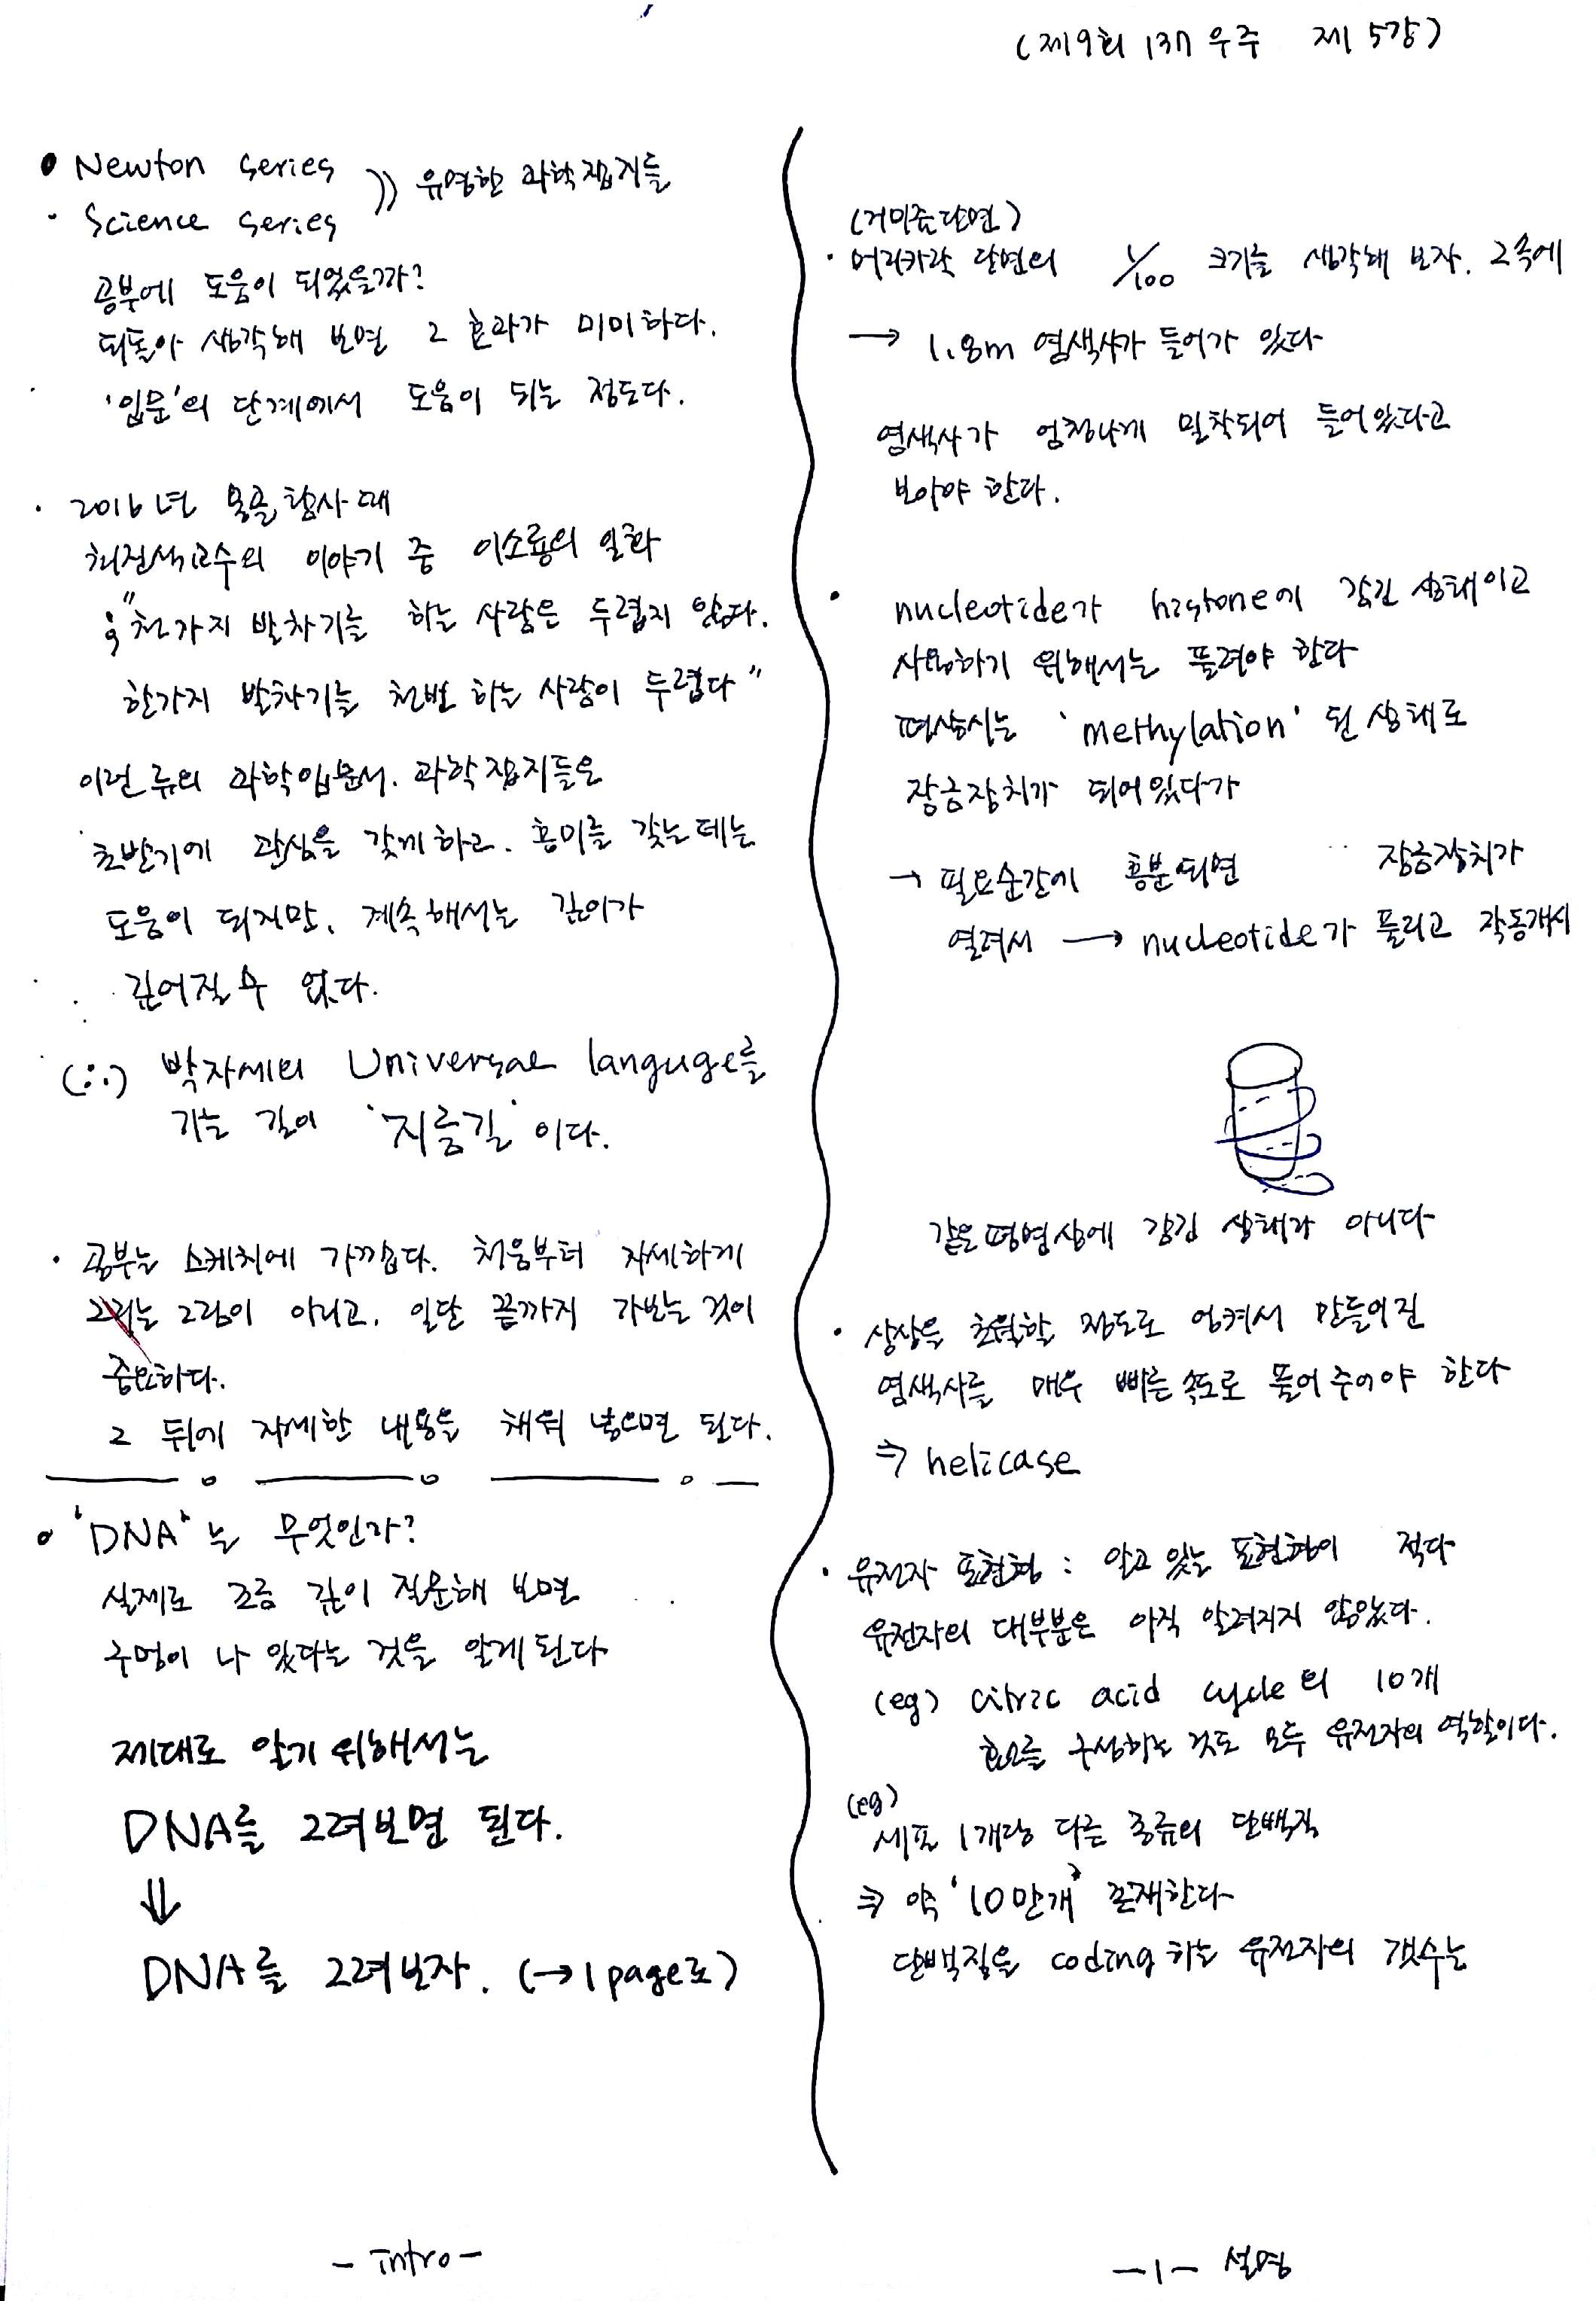 (제9회 137 우주 제 5강)
• Newton series
· Science series
)) 유명한 과학잡지들
공부에 도움이 되었을까?
뒤돌아 생각해 보면 그 효과가 미미하다.
'입문'의 단계에서 도움이 되는 정도다.
· 2016년 몽골탐사때
최진석교수의 이야기 중 이소룡의 일화
; "천가지 발차기를 하는 사람은 두렵지 않다.
한가지 발차기를 천번 하는 사람이 두렵다"
이런 류의 과학입문서. 과학잡지들은
초반기에 관심을 갖게하고. 흥미를 갖는데는
도움이 되지만, 계속해서는 깊이가
깊어질 수 없다.
(∴) 박자세의 Universal languge를
가는 길이 '지름길' 이다.
· 공부는 스케치에 가깝다. 처음부터 자세하게
그리는 그림이 아니고, 일단 끝까지 가보는 것이
중요하다.
그 뒤에 자세한 내용을 채워 넣으면 된다.
• 'DNA'는 무엇인가?
실제로 조금 깊이 질문해 보면
구멍이 나 있다는 것을 알게된다
제대로 알기 위해서는
DNA를 그려보면 된다.
⇓
DNA를 그려보자. (→ 1 page로)
- intro -
(거미줄단면)
· 머리카락 단면의 1/100 크기를 생각해 보자. 그속에
→ 1.8m 염색사가 들어가 있다
염색사가 엄청나게 밀착되어 들어있다고
보아야 한다.
· nucleotide가 histone에 감긴 상태이고
사용하기 위해서는 풀려야 한다
평상시는 'methylation' 된 상태로
잠금장치가 되어있다가
→ 필요순간에 흥분되면 잠금장치가
열려서 → nucleotide가 풀리고 작동개시
같은 평면상에 감긴 상태가 아니다
· 상상을 초월할 정도로 엉켜서 만들어진
염색사를 매우 빠른 속도로 풀어 주어야 한다
⇒ helicase
· 유전자 표현형 : 알고 있는 표현형이 적다
유전자의 대부분은 아직 알려지지 않았다.
(eg) citric acid cycle의 10개
효소를 구성하는 것도 모두 유전자의 역할이다.
(eg)
세포 1개당 다른 종류의 단백질
⇒ 약 '10만개' 존재한다
단백질을 coding 하는 유전자의 갯수는
- 1 - 설명